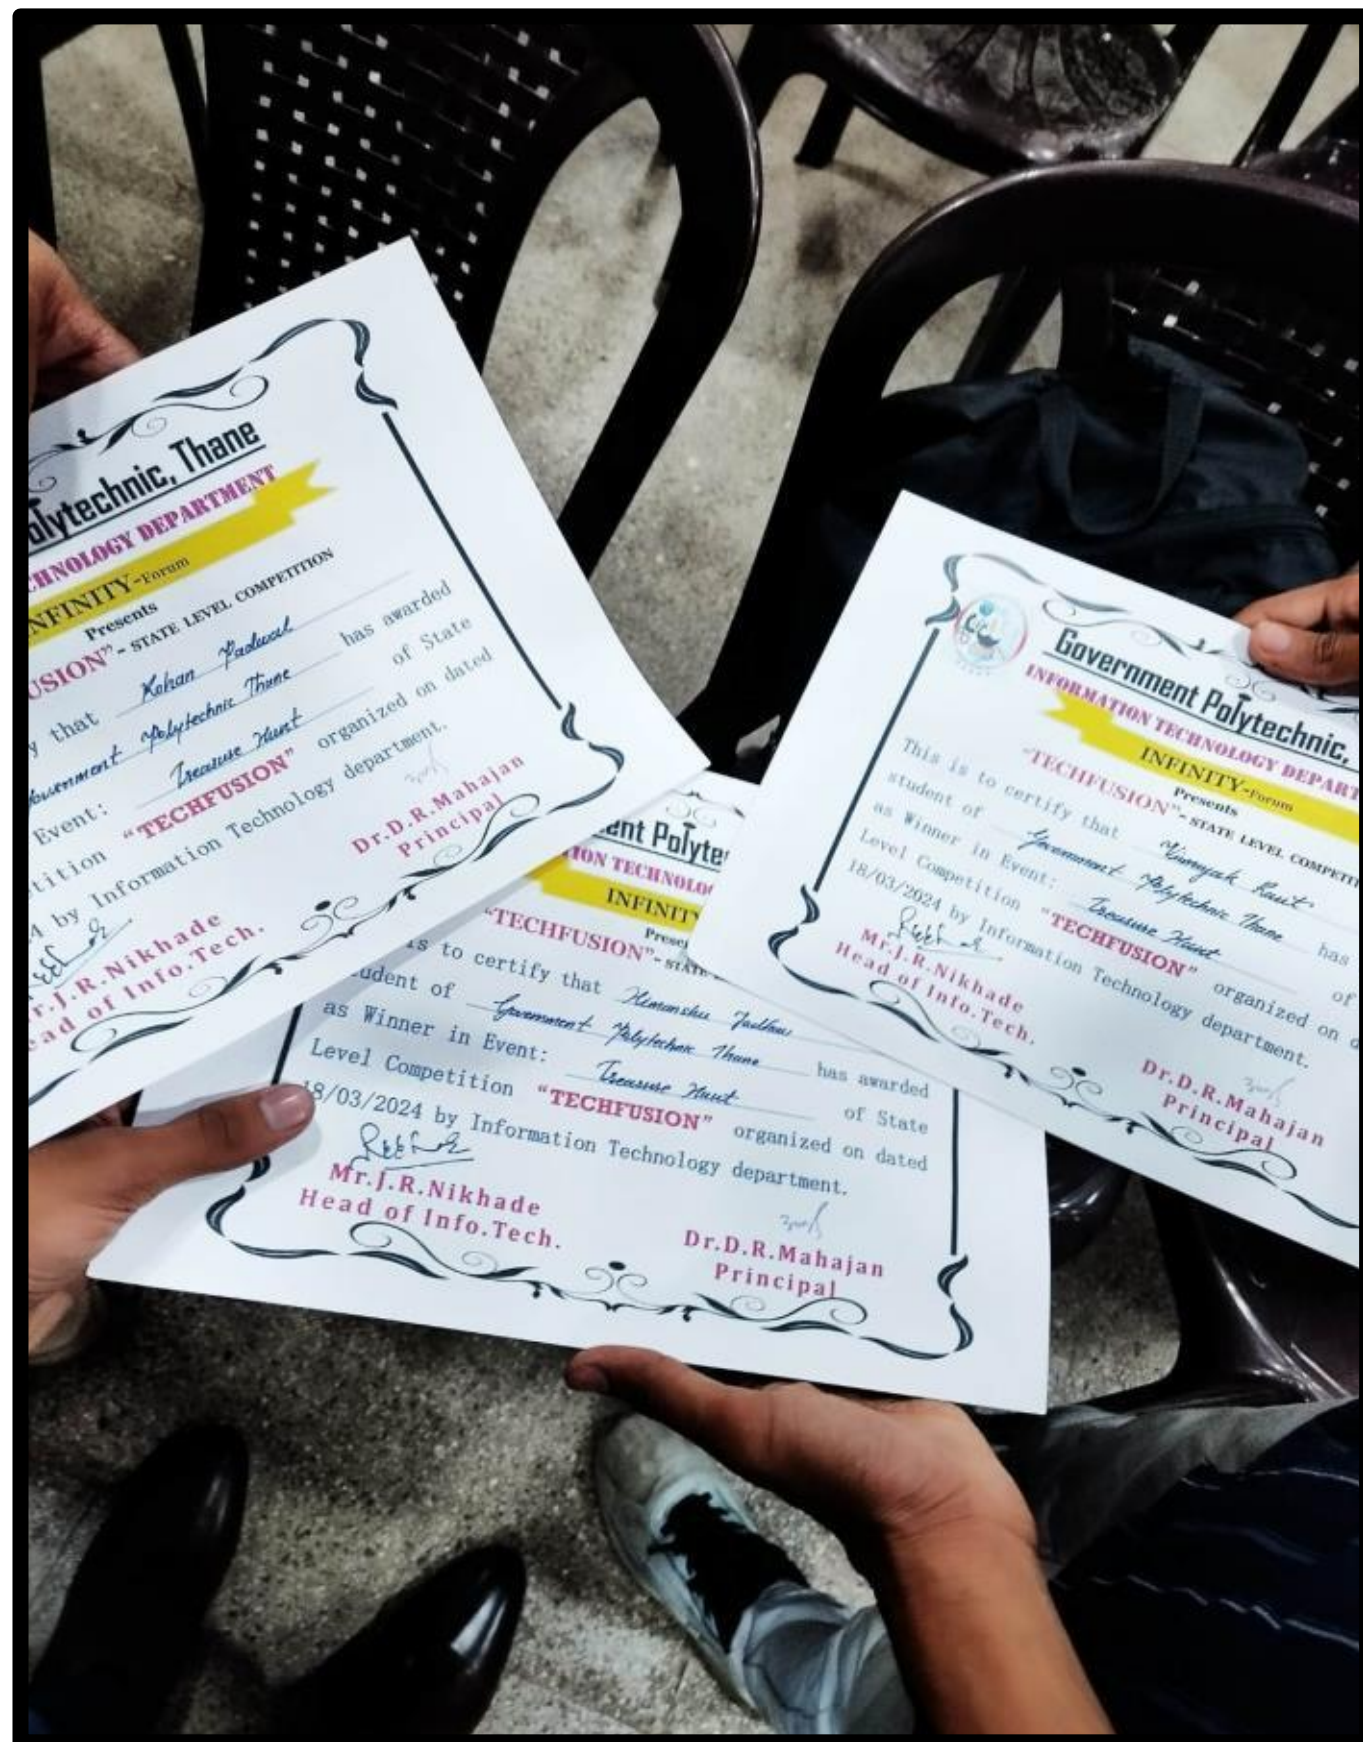 olytechnic, Thane
CHNOLOGY DEPARTMENT
NFINITY-Forum
Presents
USION"- STATE LEVEL COMPETITION
y that Rohan Padwal
overnment Polytechnic Thane has awarded
Event: Treasure Hunt of State
tition "TECHFUSION" organized on dated
4 by Information Technology department.
r.J.R.Nikhade
ead of Info.Tech.
Dr.D.R.Mahajan
Principal
ent Polyte
ION TECHNOLO
INFINIT
Prese
"TECHFUSION"- STATE
is to certify that Himanshu
udent of Government Polytechnic Thane has awarded
as Winner in Event: Treasure Hunt of State
Level Competition "TECHFUSION" organized on dated
18/03/2024 by Information Technology department.
Mr.J.R.Nikhade
Head of Info.Tech.
Dr.D.R.Mahajan
Principal
Government Polytechnic,
INFORMATION TECHNOLOGY DEPART
INFINITY-Forum
Presents
"TECHFUSION"- STATE LEVEL COMPETITI
This is to certify that Raut
student of Government Polytechnic Thane has
as Winner in Event: Treasure Hunt of
Level Competition "TECHFUSION" organized on d
18/03/2024 by Information Technology department.
Mr.J.R.Nikhade
Head of Info.Tech.
Dr.D.R.Mahajan
Principal